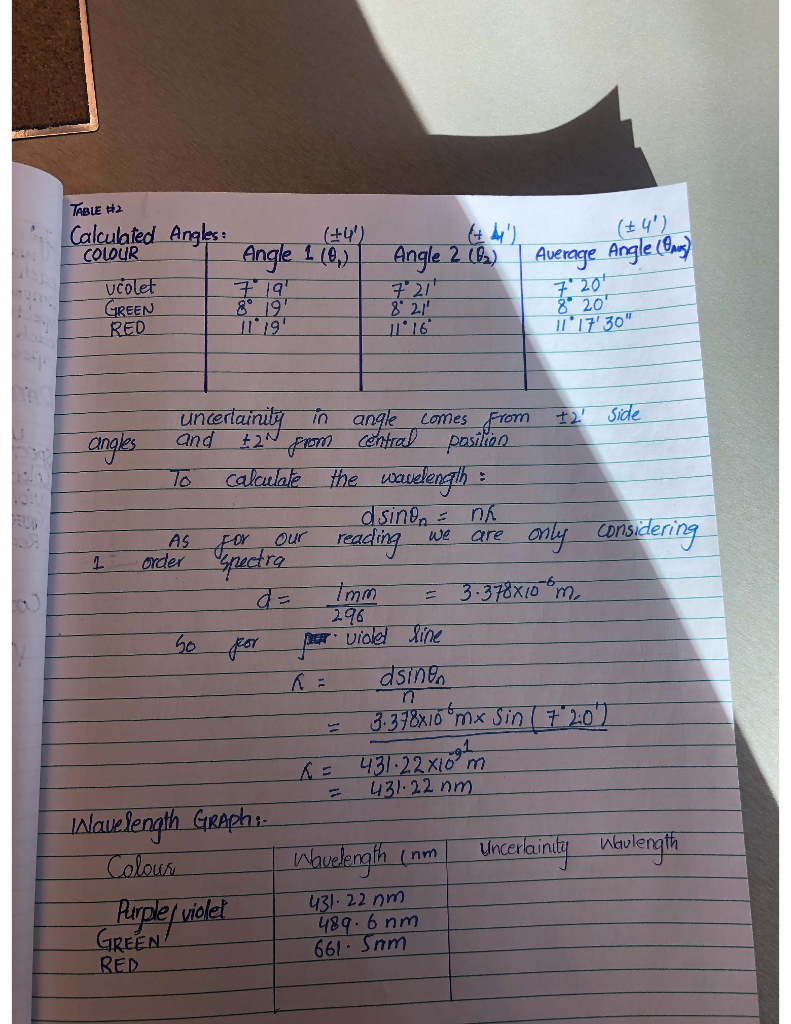 TABLE #2
Calculated Angles: (±4') (± 4') (± 4')
COLOUR Angle 1 (θ₁) Angle 2 (θ₂) Average Angle (θAvg)
violet 7° 19' 7° 21' 7° 20'
GREEN 8° 19' 8° 21' 8° 20'
RED 11° 19' 11° 16' 11° 17' 30"
uncertainity in angle comes from ±2' side
angles and ±2' from central position
To calculate the wavelength :
d sinθn = nλ
As for our reading we are only considering
1 order spectra
d = 1mm / 296 = 3.378x10⁻⁶ m.
So for violet line
λ = dsinθn / n
= 3.378x10⁻⁶ m x Sin ( 7° 20' ) / 1
λ = 431.22 x10⁻⁹ m
= 431.22 nm
Wavelength GRAPH:-
Colour Wavelength (nm Uncertainity Wavlength
Purple/violet 431.22 nm
GREEN 489.6 nm
RED 661.5nm